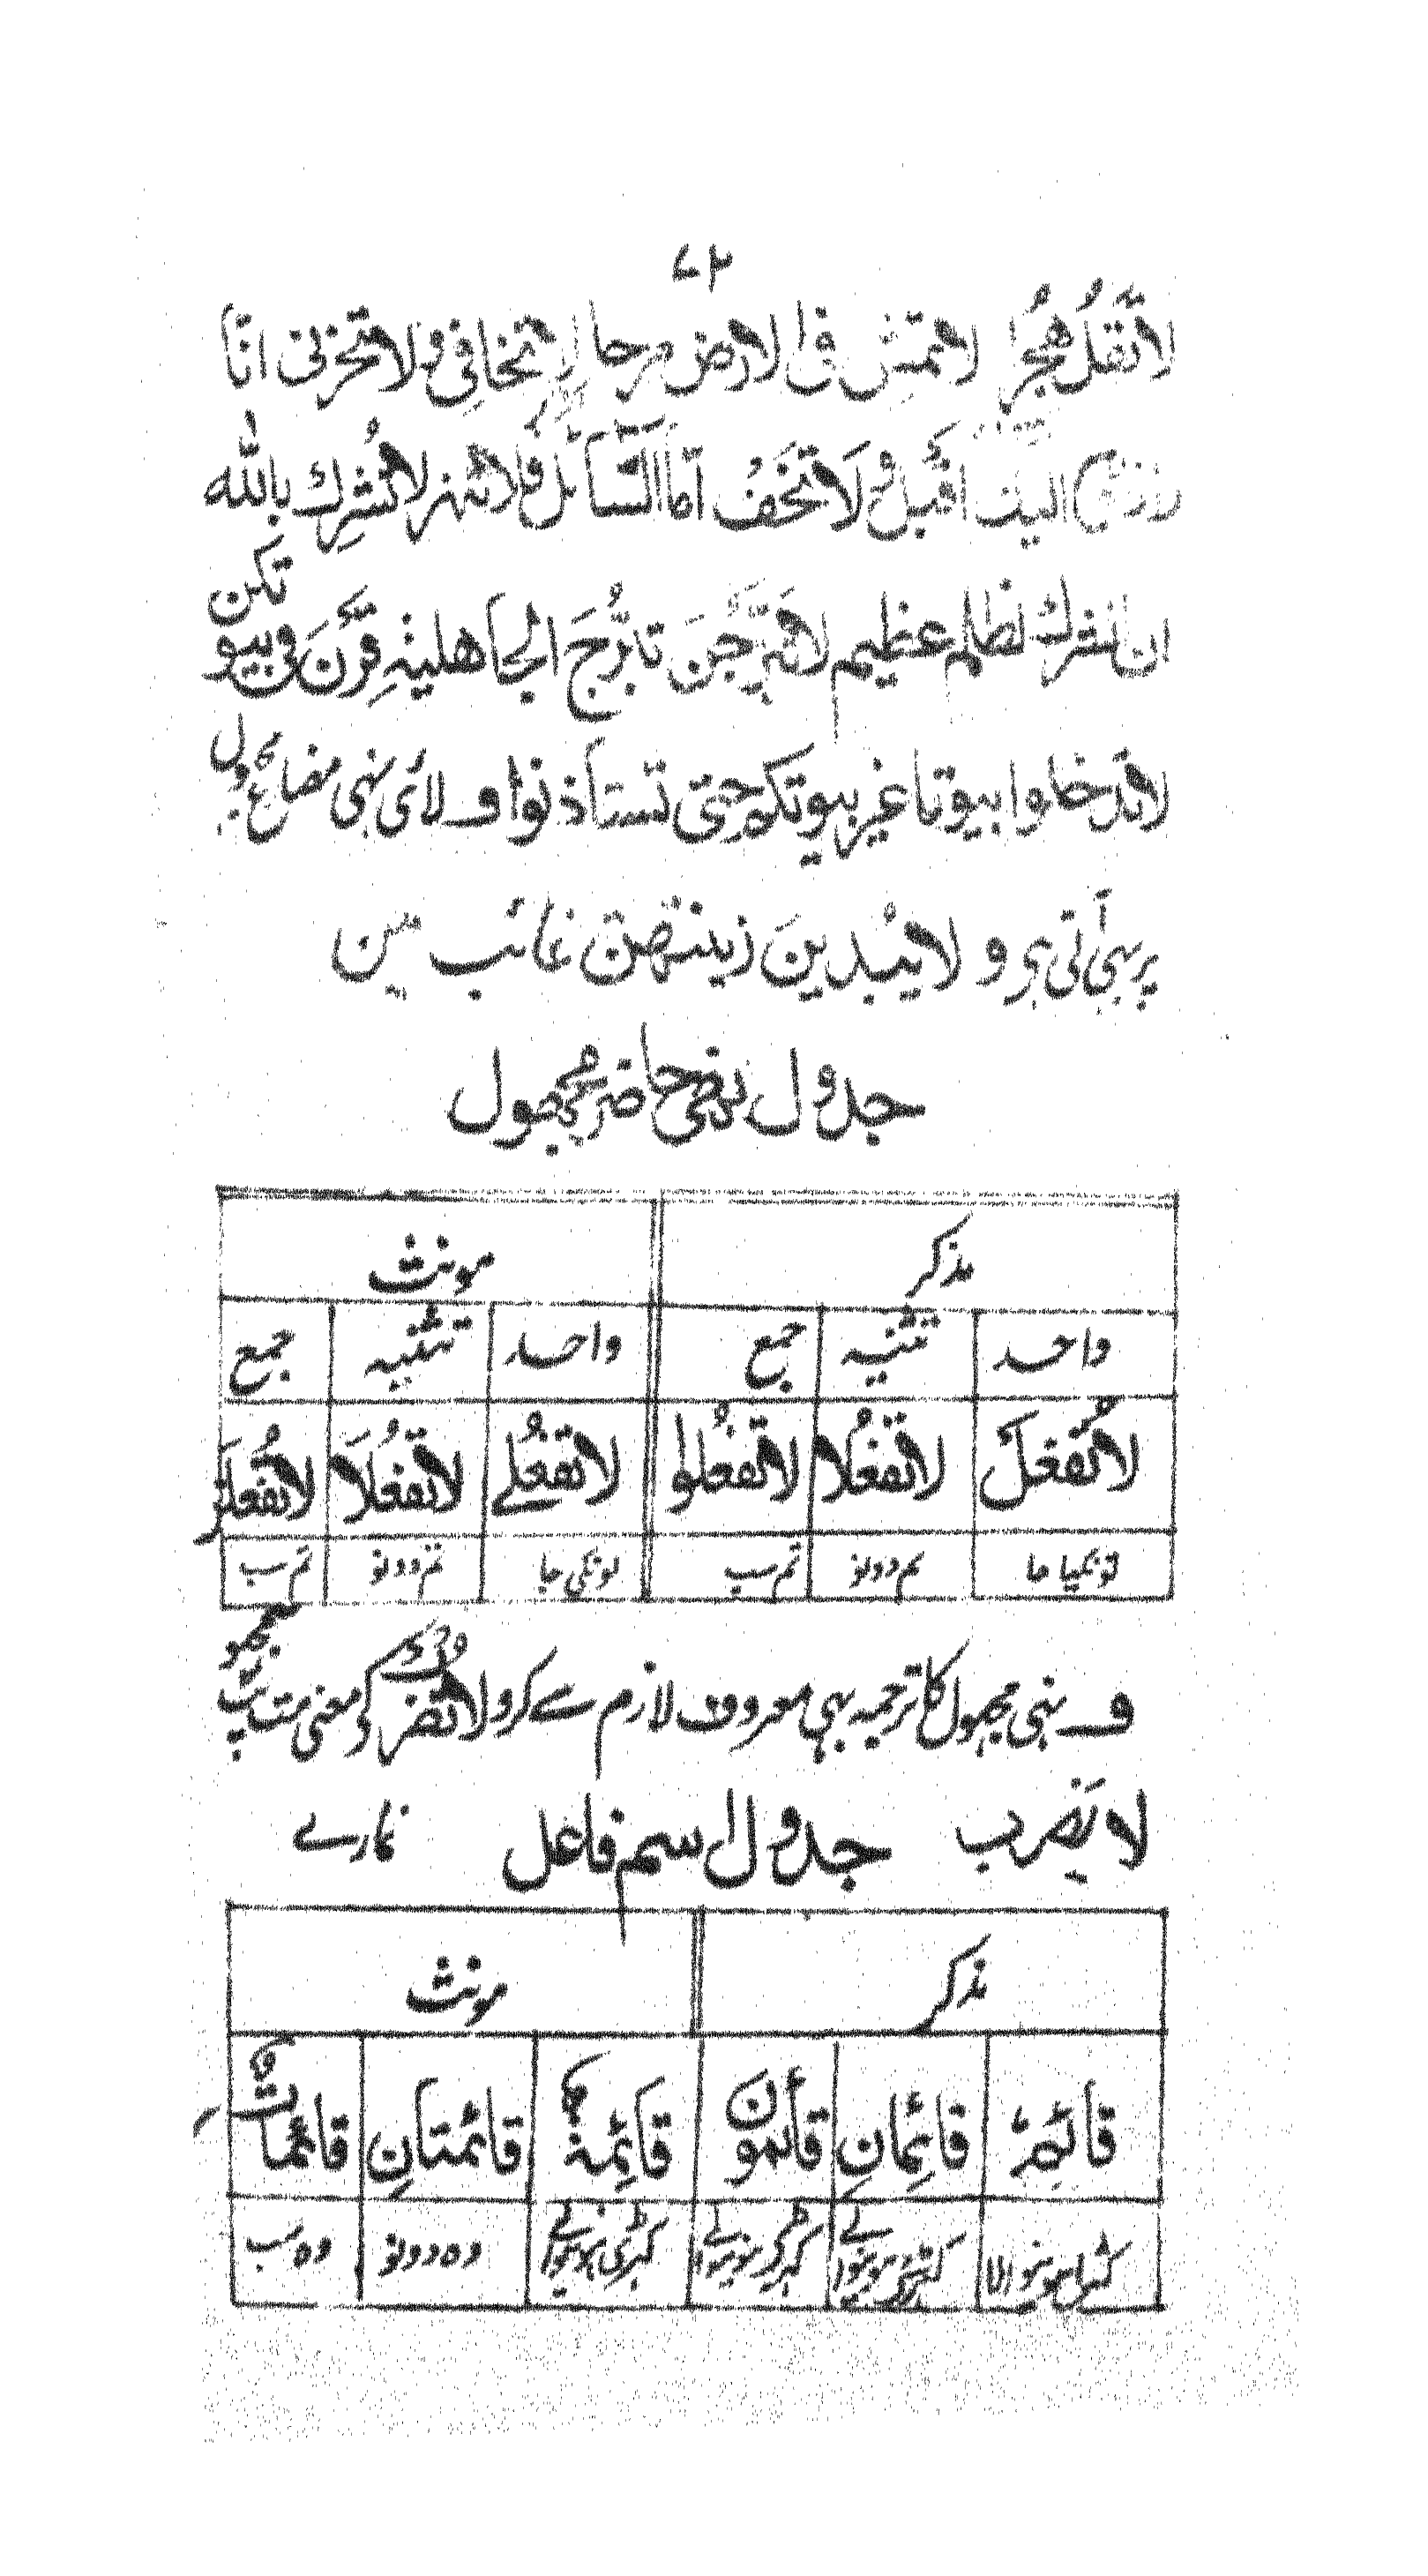 ۷۲
لا تَقُلْ هُجُرا لا تمش فی الارض مرحا لا تخافِی ولا تحزنی انّا
الیک اقبل ولَا تَخَفْ امّا السّائل فلا تنهر لا تُشرِك بالله
ان الشرك لظلم عظیم لا تَبَرَّجْنَ تبرُّجَ الجاهلیة قَرْنَ فی بیوتکن
لا تدخلوا بیوتا غیر بیوتکم حتی تستاذنوا ف لائ نہی مضارع مجہول
پر بہی آتی ہی و لا یبدین زینتهن غائب مین
جدول نہی حاضر مجہول
مذکر مونث
واحد تثنیہ جمع واحد تثنیہ جمع
لا تُفعَلْ لا تُفعَلا لا تُفعَلوا لا تُفعَلے لا تُفعَلَا لا تُفعَلنَ
تو نکیا جا تم دونو تم سب تو نکی جا تم دونو تم سب
ف نہی مجہول کا ترجمہ بہی معروف لازم سے کرو لا تُضرب کی معنی مت پٹ سمجھو
لا تضرب جدول اسم فاعل نمارے
مذکر مونث
قائمٌ قائِمانِ قائمونَ قائِمةٌ قائمتانِ قائماتٌ
کہڑا ہونیوالا کہڑے ہونیوالے کہڑے ہونیوالے کہڑی ہونیوالے وہ دونو وہ سب